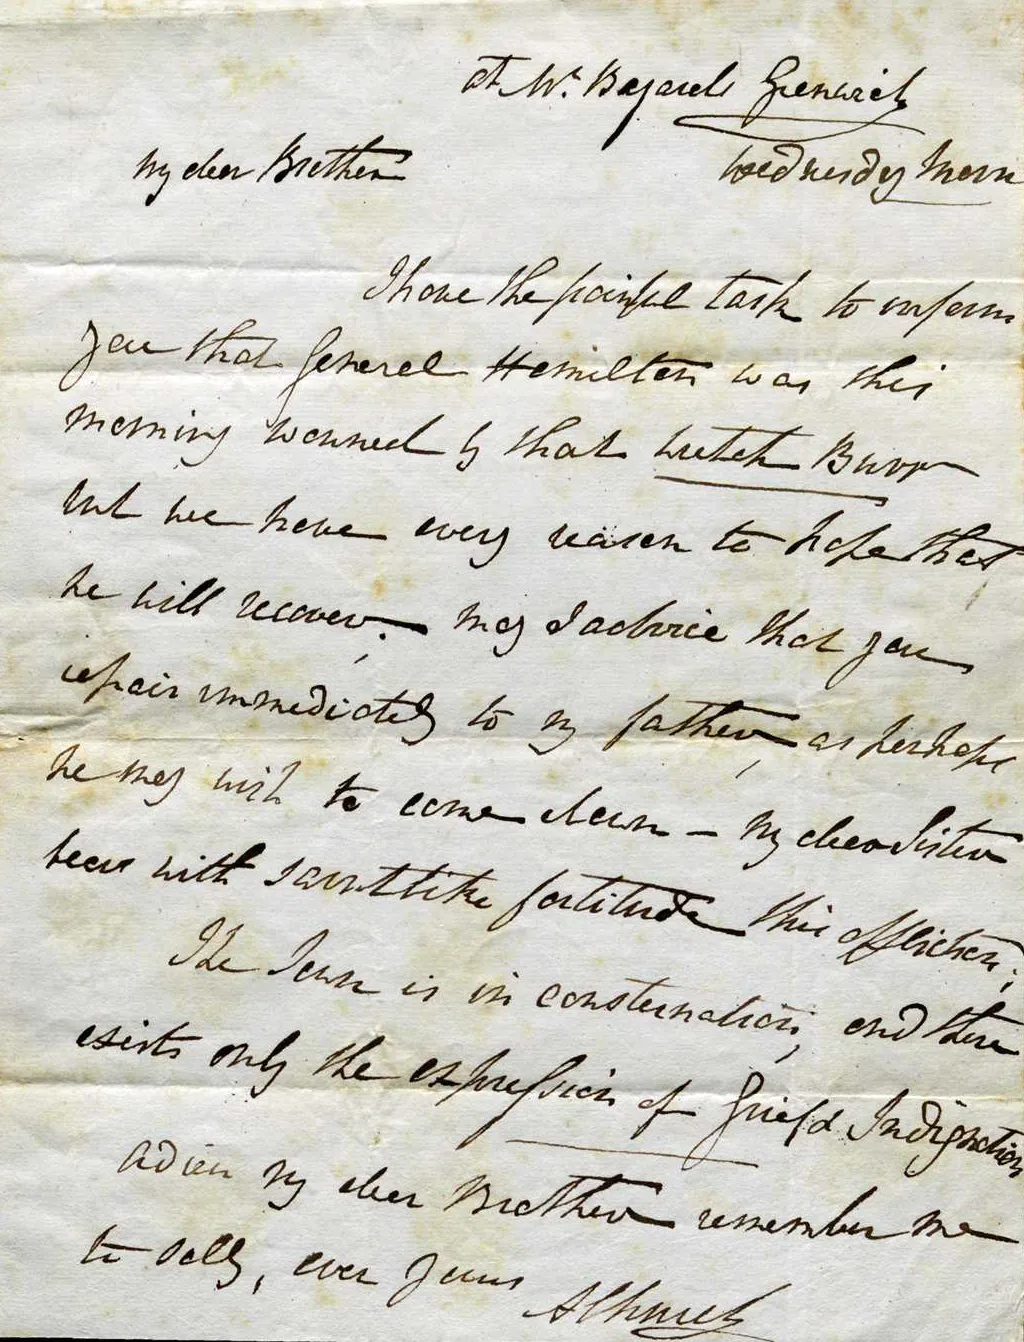 at Mr. Bayards Greenwich
Wednesday Morn
My dear Brother
I have the painful task to inform
you that General Hamilton was this
morning wounded by that wretch Burr
but we have every reason to hope that
he will recover. May I advice that you
repair immediately to my father, as perhaps
he may wish to come down - My dear Sister
bears with saintlike fortitude this affliction.
The Town is in consternation, and there
exists only the expression of Grief & Indignation
Adieu my dear Brother remember me
to Sally, ever Yours